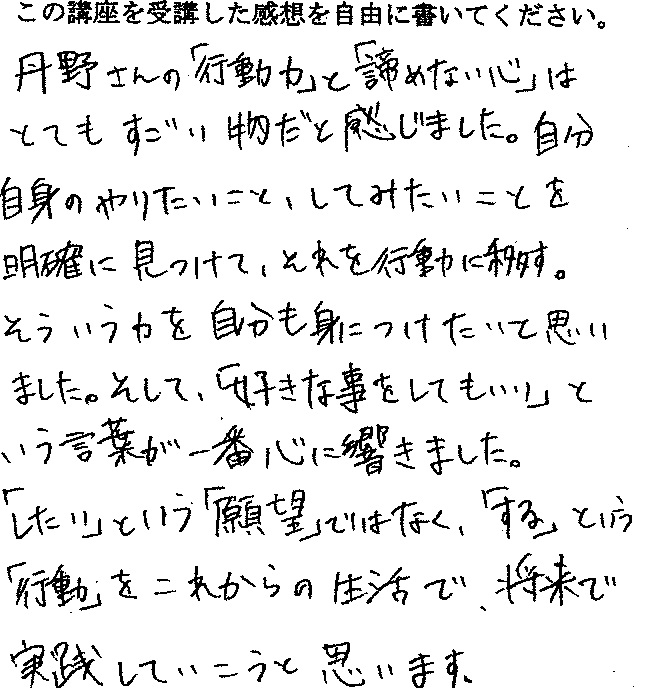 この講座を受講した感想を自由に書いてください。
丹野さんの「行動力」と「諦めない心」は
とてもすごい物だと感じました。自分
自身のやりたいこと、してみたいことを
明確に見つけて、それを行動に移す。
そういう力を自分も身につけたいと思い
ました。そして、「好きな事をしてもいい」と
いう言葉が一番心に響きました。
「したい」という「願望」ではなく、「する」という
「行動」をこれからの生活で、将来で
実践していこうと思います。